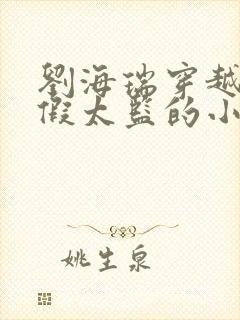 劉海瑞穿越
假太監的小
姚生泉